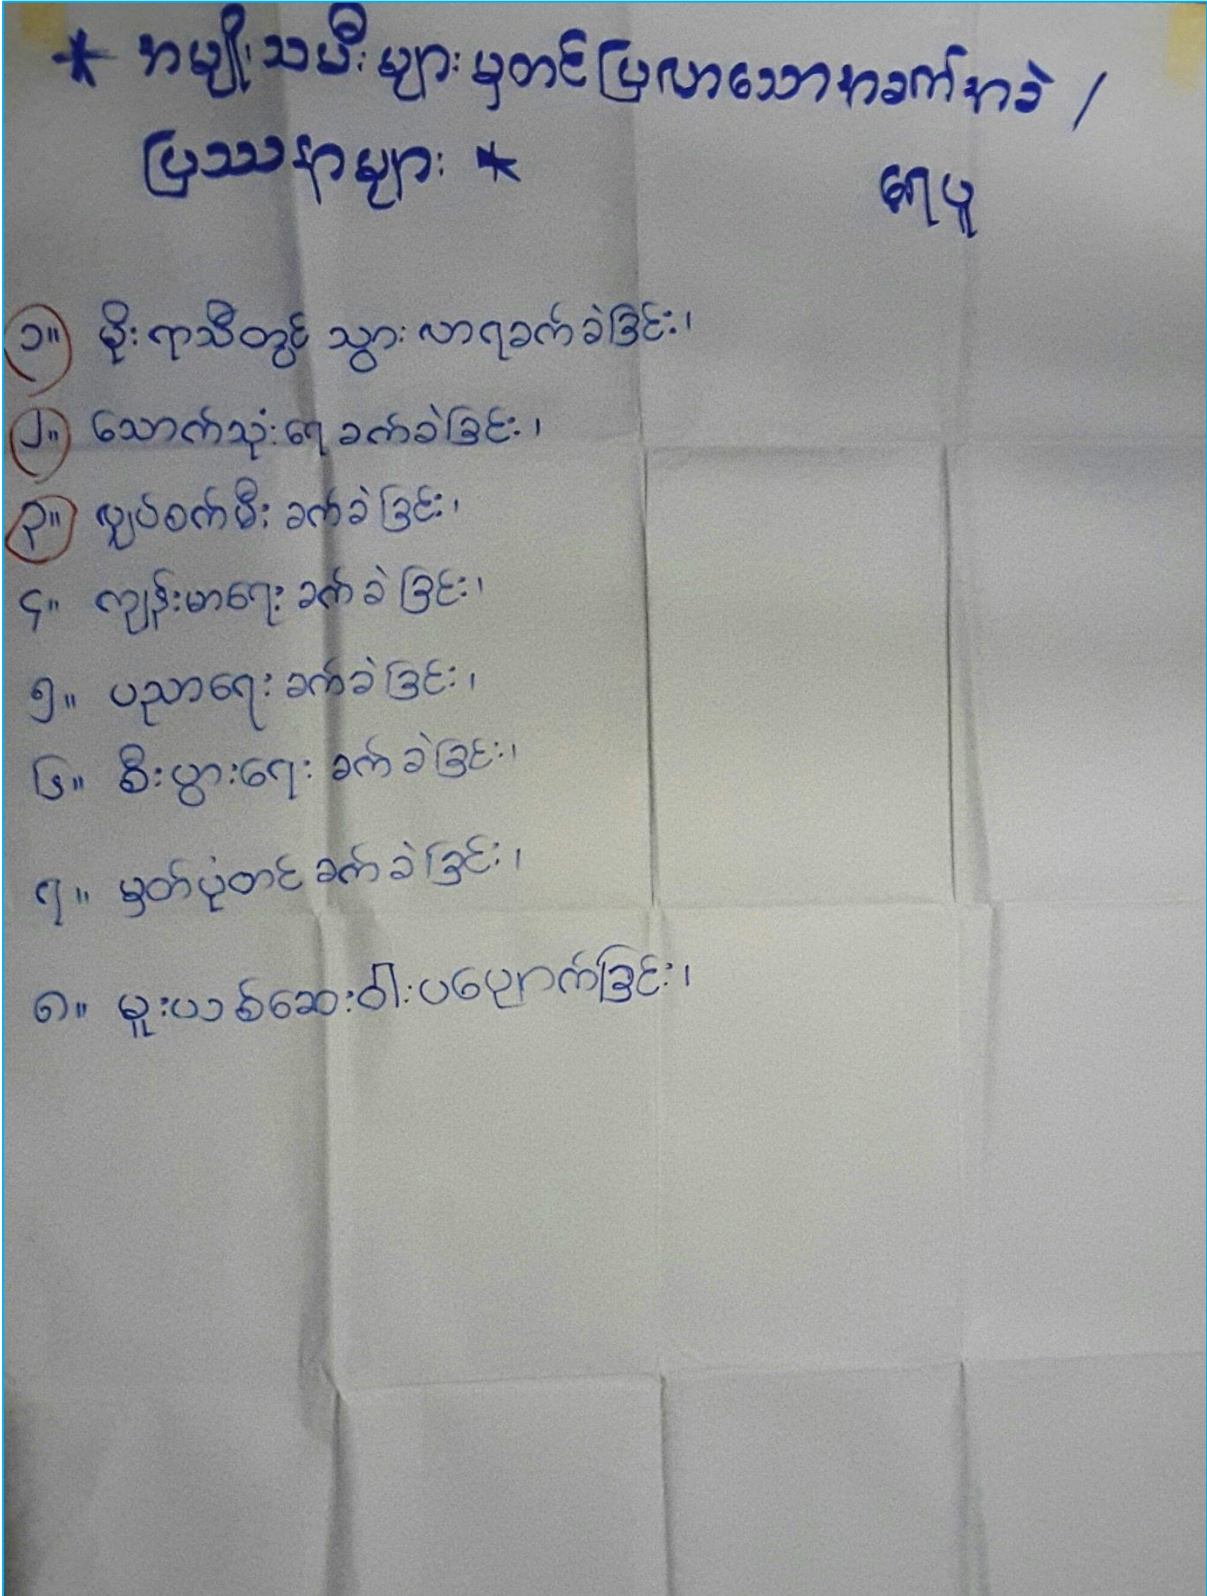 * အမျိုးသမီးများမှတင်ပြလာသောအခက်အခဲ /
ပြဿနာများ *
ရေပူ
၁။ မိုးရာသီတွင် သွားလာရခက်ခဲခြင်း၊
၂။ သောက်သုံးရေ ခက်ခဲခြင်း၊
၃။ လျှပ်စက်မီး ခက်ခဲခြင်း၊
၄။ ကျန်းမာရေး ခက်ခဲခြင်း၊
၅။ ပညာရေး ခက်ခဲခြင်း၊
၆။ စီးပွားရေး ခက်ခဲခြင်း၊
၇။ မှတ်ပုံတင် ခက်ခဲခြင်း၊
၈။ မူးယစ်ဆေးဝါးပပျောက်ခြင်း၊